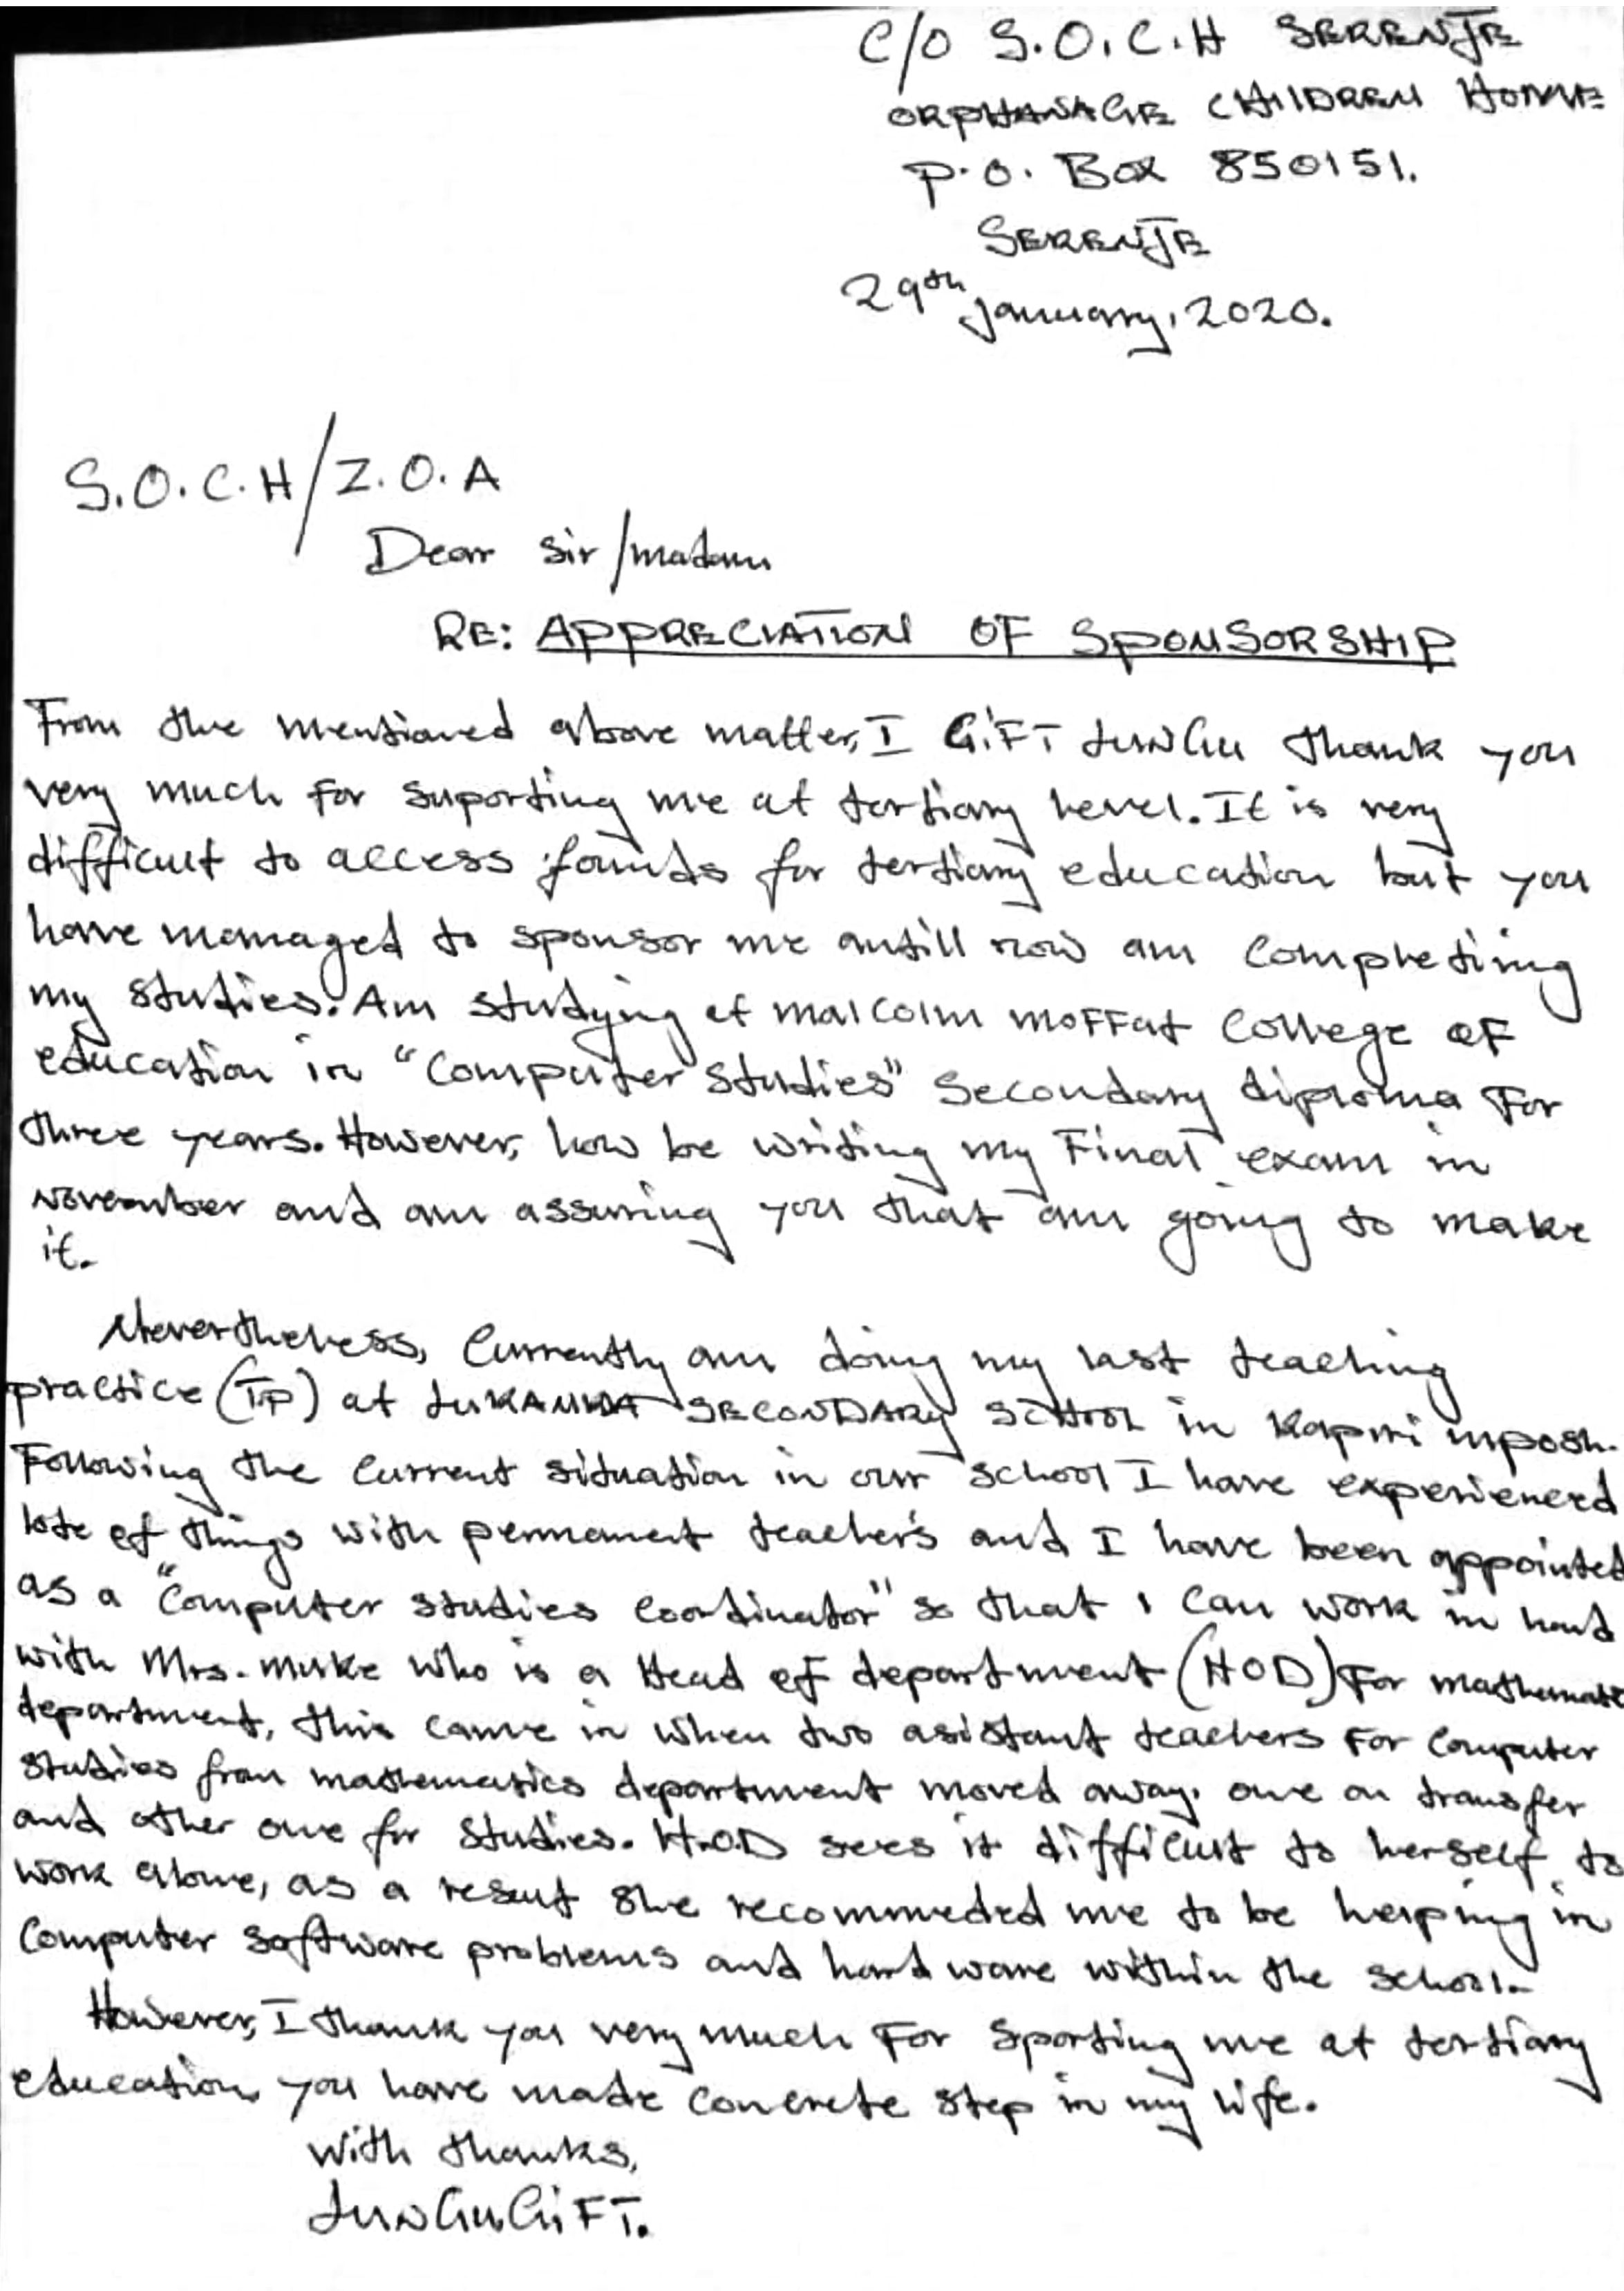 C/O S.O.C.H SERENJE
ORPHANAGE CHILDREN HOME
P.O. Box 850151.
SERENJE
29th January, 2020.
S.O.C.H/Z.O.A
Dear Sir/madam
RE: APPRECIATION OF SPONSORSHIP
From the mentioned above matter, I GIFT LUNGU thank you
very much for suporting me at tertiary level. It is very
difficult to access founds for tertiary education but you
have managed to sponsor me antill now am completing
my studies. Am studying at malcolm moffat college of
education in "Computer studies" secondary diploma for
three years. However, how be writing my Final exam in
November and am assuring you that am going to make
it.
Nevertheless, Currently am doing my last teaching
practice (TP) at LUKANDA SECONDARY SCHOOL in Kapiri mposh.
Following the current situation in our school I have experienerd
lots of things with permanent teacher's and I have been appointed
as a "Computer studies coordinator" so that I can work in hand
with Mrs. Muke who is a Head of department (HOD) for mathematic
department, this came in when two asistant teachers for computer
studies from mathematics department moved away. one on transfer
and other one for studies. H.O.D sees it difficult to herself to
work alone, as a resut she recommeded me to be helping in
Computer software problems and hard ware within the school.
However, I thank you very much for sporting me at tertiary
education, you have made concrete step in my life.
with thanks,
LUNGU GIFT.